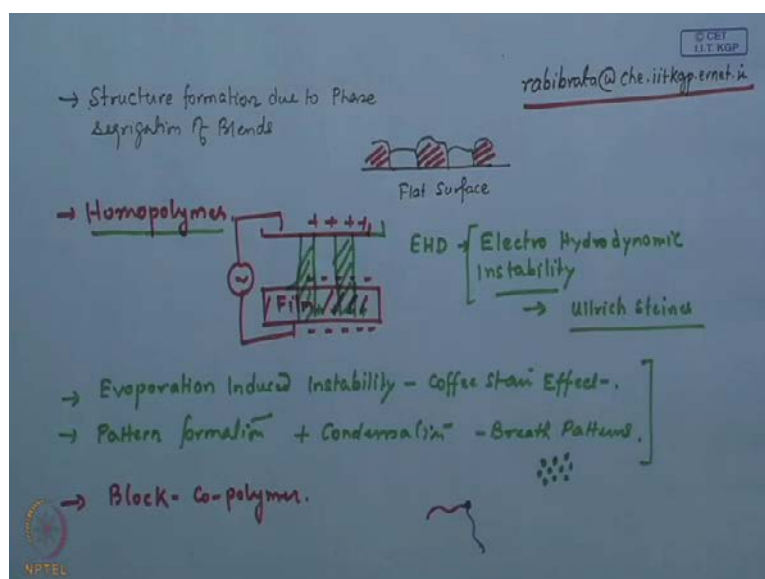 © CET
I.I.T. KGP
rabibrata@che.iitkgp.ernet.in
→ Structure formation due to Phase
Segrigation of Blends
Flat Surface
→ Homopolymer
+ + + +
EHD → Electro Hydrodynamic
Instability
- - - -
Film
→ Ullrich Steiner
- - - - -
→ Evaporation Induced Instability - Coffee Stain Effect-.
→ Pattern formation + Condensation - Breath Patterns.
→ Block- Co-polymer.
NPTEL